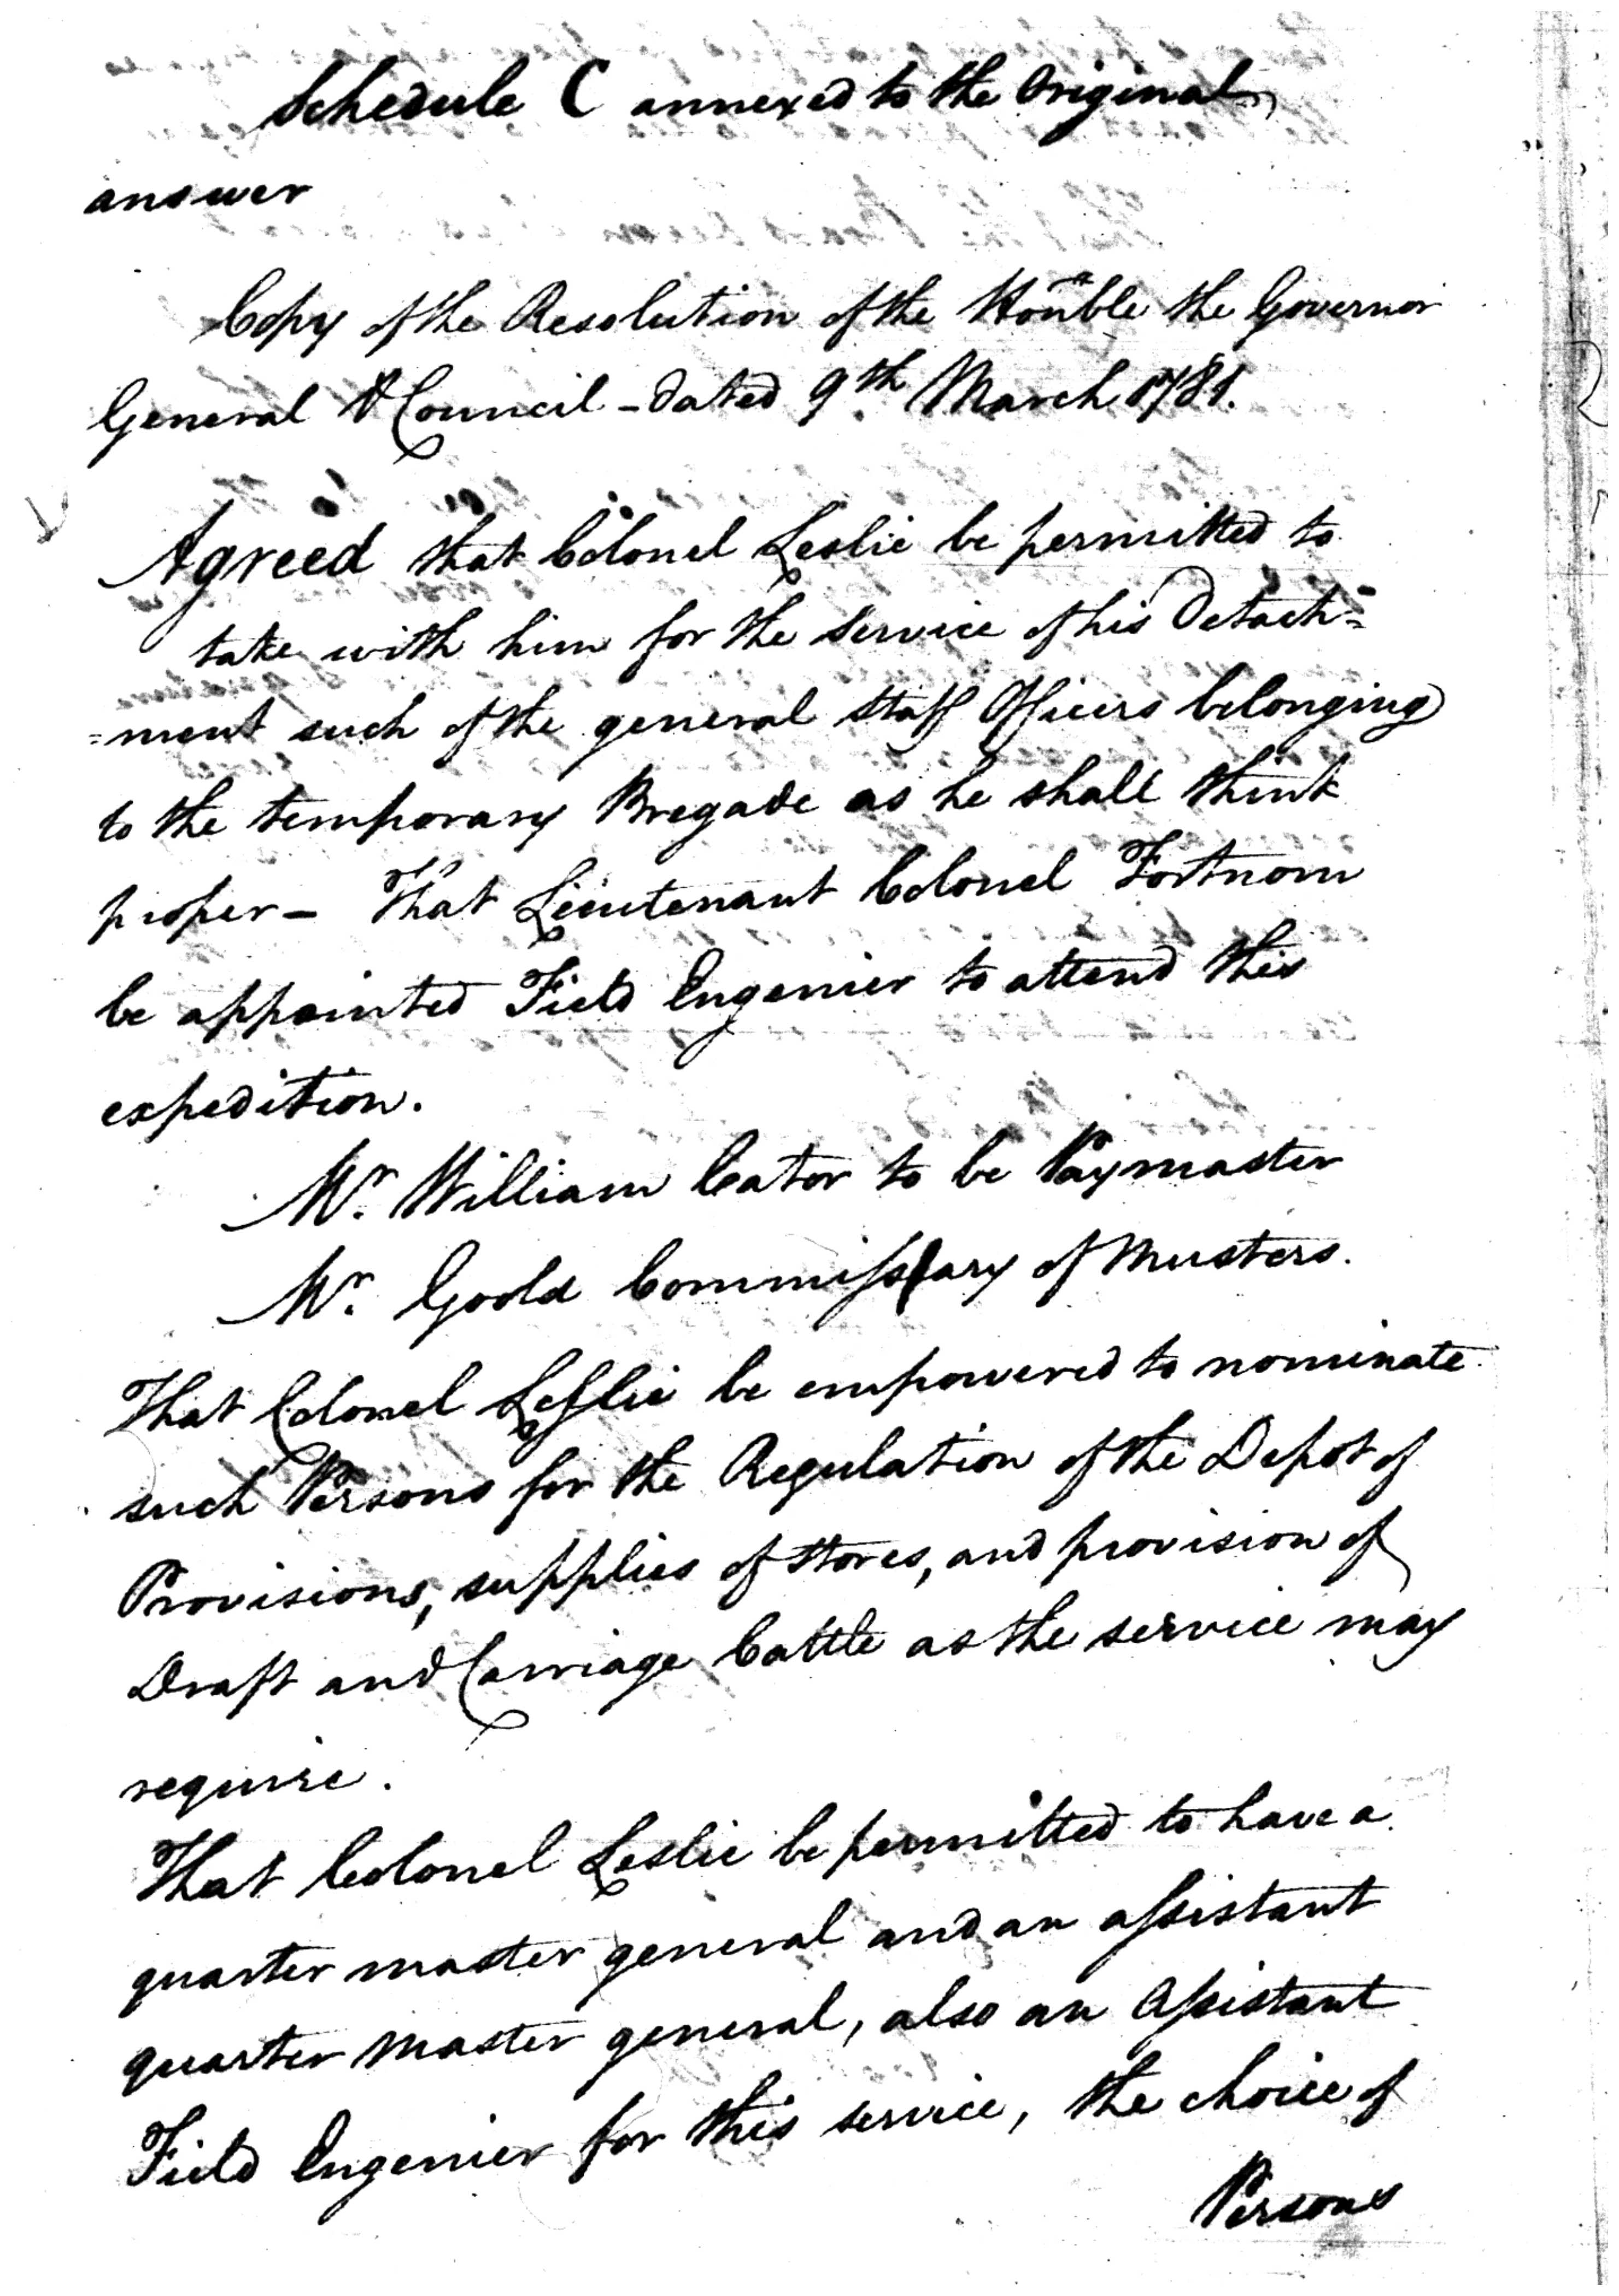 Schedule C annexed to the Original
answer
Copy of the Resolution of the Honble the Governor
General & Council - dated 9th March 1781.
Agreed that Colonel Leslie be permitted to
take with him for the Service of his Detach=
=ment such of the general Staff Officers belonging
to the temporary Bregade as he shall think
proper - That Lieutenant Colonel Fortnom
be appointed Field Engenier to attend this
expedition.
Mr. William Cator to be Paymaster
Mr. Goold Commissary of Musters.
That Colonel Leslie be empowered to nominate
such Persons for the Regulation of the Depot of
Provisions, supplies of Stores, and provision of
Draft and Carriage Cattle as the service may
require.
That Colonel Leslie be permitted to have a
quarter master general and an assistant
quarter Master general, also an Assistant
Field Engenier for this service, the choice of
Persons